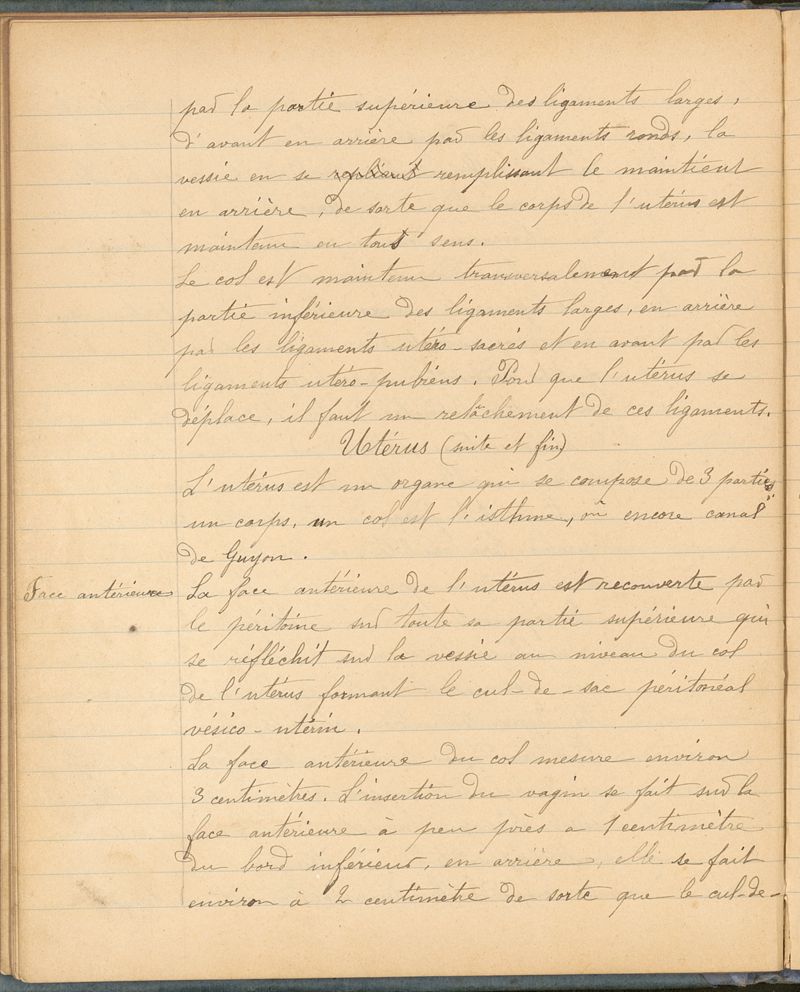 par la partie supérieure des ligaments larges,
d'avant en arrière par les ligaments ronds, la
vessie en se remplissant le maintient
en arrière, de sorte que le corps de l'utérus est
maintenu en tous sens.
Le col est maintenu transversalement par la
partie inférieure des ligaments larges, en arrière
par les ligaments utéro-sacrés et en avant par les
ligaments utéro-pubiens. Pour que l'utérus se
déplace, il faut un relâchement de ces ligaments.
Utérus (suite et fin)
L'utérus est un organe qui se compose de 3 parties:
un corps, un col est l'isthme, ou encore canal
de Guyon.
Face antérieure
La face antérieure de l'utérus est recouverte par
le péritoine sur toute sa partie supérieure qui
se réfléchit sur la vessie au niveau du col
de l'utérus formant le cul-de-sac péritonéal
vésico-utérin.
La face antérieure du col mesure environ
3 centimètres. L'insertion du vagin se fait sur la
face antérieure à peu près a 1 centimètre
du bord inférieur, en arrière, elle se fait
environ à 2 centimètre de sorte que le cul-de-